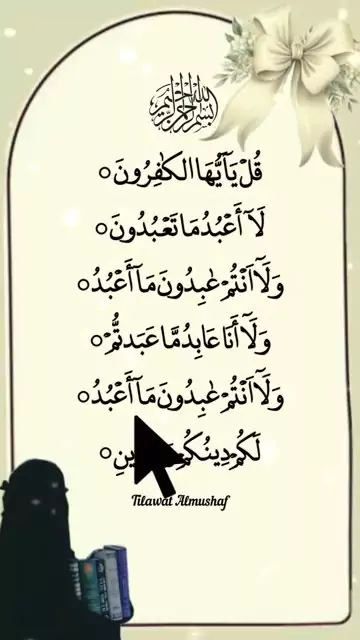 بسم الله الرحمن الرحيم
قُلْ يَآ أَيُّهَا الكٰفِرُونَ ○
لَآ أَعْبُدُ مَا تَعْبُدُونَ ○
وَلَآ اَنْتُمْ عٰبِدُونَ مَآ أَعْبُدُ ○
وَلَآ أَنَا عَابِدٌ مَّا عَبَدتُّمْ ○
وَلَآ اَنْتُمْ عٰبِدُونَ مَآ أَعْبُدُ ○
لَكُمْ دِينُكُمْ دِينِ ○
Tilawat Almushaf